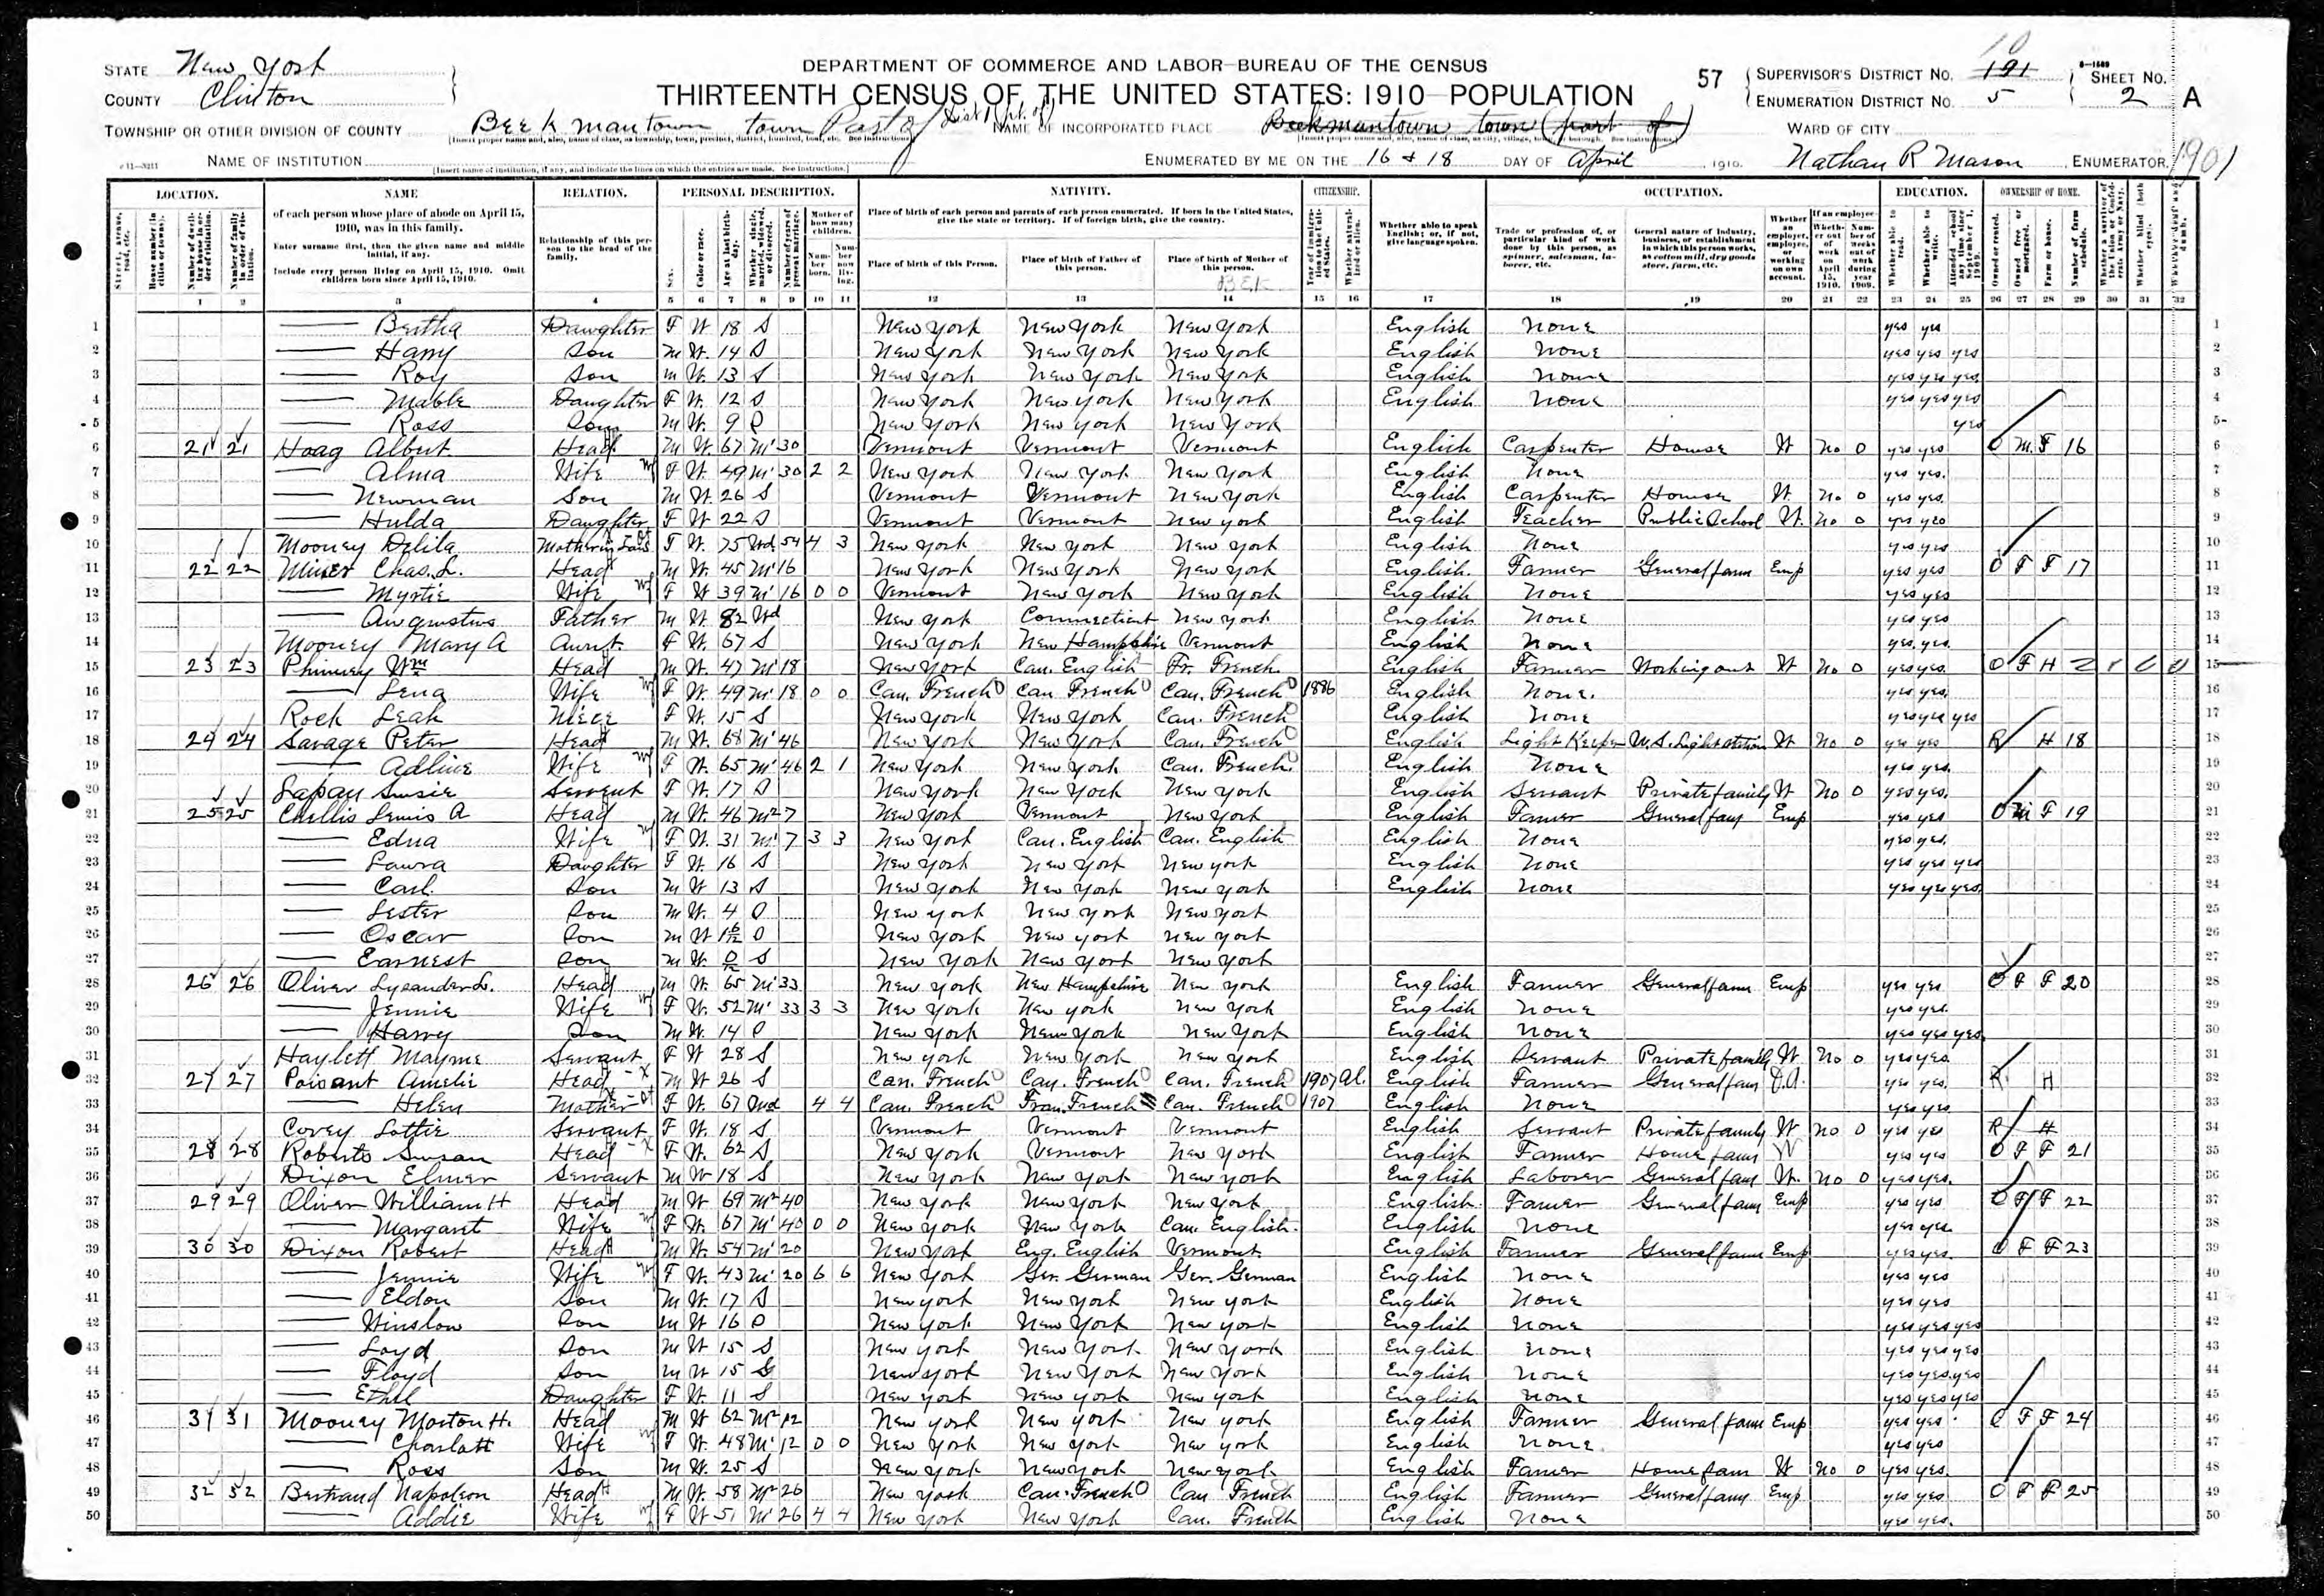 DEPARTMENT OF COMMERCE AND LABOR—BUREAU OF THE CENSUS
THIRTEENTH CENSUS OF THE UNITED STATES: 1910—POPULATION
STATE New York
COUNTY Clinton
57 SUPERVISOR'S DISTRICT No. 191 10 SHEET No.
ENUMERATION DISTRICT No. 5 2 A
TOWNSHIP OR OTHER DIVISION OF COUNTY Beekmantown town Part of Dist 1 (pt. of) NAME OF INCORPORATED PLACE Beekmantown town (part of) WARD OF CITY
NAME OF INSTITUTION ENUMERATED BY ME ON THE 16 & 18 DAY OF April 1910. Nathan R Mason ENUMERATOR. 1901
LOCATION. NAME RELATION. PERSONAL DESCRIPTION. NATIVITY. CITIZENSHIP. OCCUPATION. EDUCATION. OWNERSHIP OF HOME.
of each person whose place of abode on April 15, 1910, was in this family.
Enter surname first, then the given name and middle initial, if any.
Include every person living on April 15, 1910. Omit children born since April 15, 1910.
Relationship of this person to the head of the family.
Place of birth of each person and parents of each person enumerated. If born in the United States, give the state or territory. If of foreign birth, give the country.
Place of birth of this Person. Place of birth of Father of this person. Place of birth of Mother of this person.
Whether able to speak English; or, if not, give language spoken.
1 2 3 4 5 6 7 8 9 10 11 12 13 14 15 16 17 18 19 20 21 22 23 24 25 26 27 28 29 30 31 32
1 — Bertha Daughter F W 18 S New York New York New York English None yes yes 1
2 — Harry Son M W. 14 S New York New York New York English None yes yes yes 2
3 — Roy Son M W. 13 S New York New York New York English None yes yes yes 3
4 — Mable Daughter F W. 12 S New York New York New York English None yes yes yes 4
5 — Ross Son M W. 9 S New York New York New York yes 5
6 21 21 Hoag Albert Head M W. 67 M1 30 Vermont Vermont Vermont English Carpenter House W No 0 yes yes O M F 16 6
7 — Alma Wife F W. 49 M1 30 2 2 New York New York New York English None yes yes. 7
8 — Newman Son M W. 26 S Vermont Vermont New York English Carpenter House W. No 0 yes yes. 8
9 — Hulda Daughter F W 22 S Vermont Vermont New York English Teacher Public School W. No 0 yes yes 9
10 Mooney Delila Mother in Law F W. 75 Wd 54 4 3 New York New York New York English None yes yes 10
11 22 22 Miner Chas. L. Head M W. 45 M1 16 New York New York New York English. Farmer General farm Emp yes yes O F F 17 11
12 — Myrtie Wife F W 39 M1 16 0 0 Vermont New York New York English None yes yes 12
13 — Augustus Father M W. 82 Wd New York Connecticut New York English None yes yes 13
14 Mooney Mary A Aunt. F W. 67 S New York New Hampshire Vermont English None yes. yes. 14
15 23 23 Phinney Wm Head M W. 47 M1 18 New York Can. English Fr. French English Farmer Working out W No 0 yes yes. O F H 15
16 — Lena Wife F W. 49 M1 18 0 0 Can. French Can French Can. French 1886 English None. yes yes. 16
17 Rock Leah Niece F W. 15 S New York New York Can. French English None yes yes yes 17
18 24 24 Savage Peter Head M W. 68 M1 46 New York New York Can. French English Light Keeper U.S. Light station W No 0 yes yes R H 18 18
19 — Adline Wife F W. 65 M1 46 2 1 New York New York Can. French English None yes yes. 19
20 Lapan Susie Servent F W. 17 S New York New York New York English Servant Private family W No 0 yes yes. 20
21 25 25 Chellis Lewis A Head M W. 46 M2 7 New York Vermont New York English Farmer General farm Emp yes yes O M F 19 21
22 — Edna Wife F W. 31 M1 7 3 3 New York Can. English Can. English English None yes yes. 22
23 — Laura Daughter F W. 16 S New York New York New York English None yes yes yes 23
24 — Carl. Son M W 13 S New York New York New York English None yes yes yes. 24
25 — Lester Son M W. 4 S New York New York New York 25
26 — Oscar Son M W 1 6/12 S New York New York New York 26
27 — Earnest Son M W. 0/12 S New York New York New York 27
28 26 26 Oliver Lysander L. Head M W. 65 M1 33 New York New Hampshire New York English Farmer General farm Emp yes yes O F F 20 28
29 — Jennie Wife F W. 52 M1 33 3 3 New York New York New York English None yes yes. 29
30 — Harry Son M W. 14 S New York New York New York English None yes yes yes. 30
31 Haylett Mayme Servant F W 28 S New York New York New York English Servant Private family W. No 0 yes yes. 31
32 27 27 Poisant Amelie Head M W 26 S Can. French Can. French Can. French 1907 al. English Farmer General farm O.A. yes yes. R. H 32
33 — Helen Mother F W. 67 Wd 4 4 Can. French Fran. French Can. French 1907 English None yes yes 33
34 Covey Lottie Servant F W. 18 S Vermont Vermont Vermont English Servant Private family W No 0 yes yes R H 34
35 28 28 Roberts Susan Head F W. 62 S New York Vermont New York English Farmer Home farm W yes yes O F F 21 35
36 Dixon Elmer Servant M W 18 S New York New York New York English Laborer General farm W. No 0 yes yes. 36
37 29 29 Oliver William H Head M W 69 M2 40 New York New York New York English. Farmer General farm Emp yes yes O F F 22 37
38 — Margaret Wife F W. 67 M1 40 0 0 New York New York Can. English. English None yes yes 38
39 30 30 Dixon Robert Head M W. 54 M1 20 New York Eng. English Vermont English Farmer General farm Emp yes yes. O F F 23 39
40 — Jennie Wife F W. 43 M1 20 6 6 New York Ger. German Ger. German English None yes yes 40
41 — Eldon Son M W. 17 S New York New York New York English None yes yes 41
42 — Winslow Son M W 16 S New York New York New York English None yes yes yes 42
43 — Loyd Son M W 15 S New York New York New York English None yes yes yes 43
44 — Floyd Son M W 15 S New York New York New York English None yes yes. yes 44
45 — Ethel Daughter F W. 11 S New York New York New York English None yes yes yes 45
46 31 31 Mooney Morton H. Head M W 62 M2 12 New York New York New York English Farmer General farm Emp yes yes O F F 24 46
47 — Charlott Wife F W. 48 M1 12 0 0 New York New York New York English None. yes yes 47
48 — Ross Son M W. 25 S New York New York New York English Farmer Home farm W No 0 yes yes. 48
49 32 32 Bertrand Napoleon Head M W. 58 M2 26 New York Can. French Can French English Farmer General farm Emp yes yes O F F 25 49
50 — Addie Wife F W 51 M1 26 4 4 New York New York Can. French English None yes yes. 50